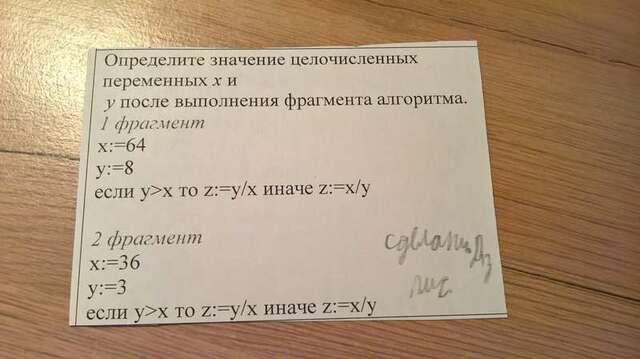 Определите значение целочисленных
переменных x и
y после выполнения фрагмента алгоритма.
1 фрагмент
x:=64
y:=8
если y>x то z:=y/x иначе z:=x/y
2 фрагмент
x:=36
y:=3
если y>x то z:=y/x иначе z:=x/y